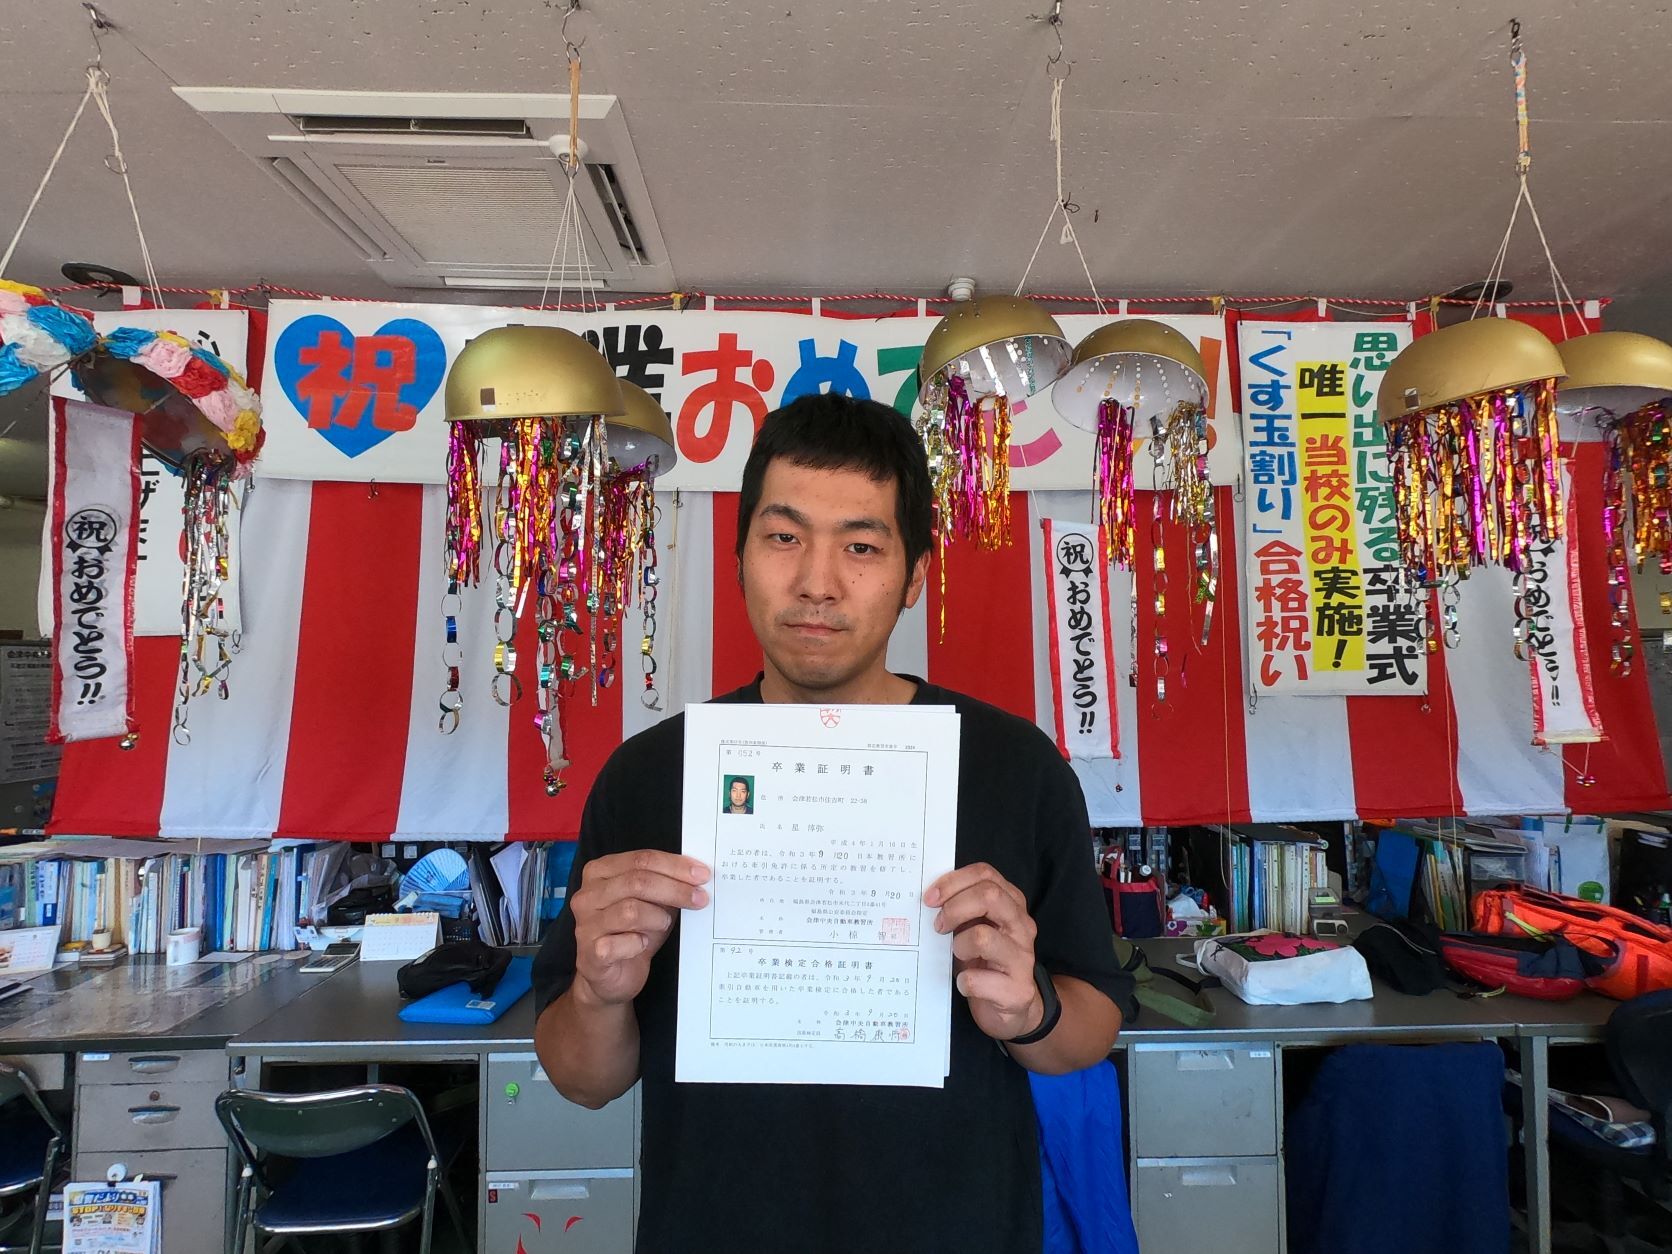 祝 業おめでと!
思い出に残る卒業式
唯一当校のみ実施!
「くす玉割り」合格祝い
祝 おめでとう!!
祝 おめでとう!!
第 052 号
卒業証明書
住所 会津若松市住吉町 22-38
氏名 星 惇弥
平成4年1月16日生
上記の者は、令和3年9月20日本教習所に
おける牽引免許に係る所定の教習を修了し、
卒業した者であることを証明する。
令和3年9月20日
福島県公安委員会指定
名称 会津中央自動車教習所
管理者 小椋 智
第 92 号
卒業検定合格証明書
上記卒業証明書記載の者は、令和3年9月20日
牽引自動車を用いた卒業検定に合格した者であ
ることを証明する。
令和3年9月20日
名称 会津中央自動車教習所